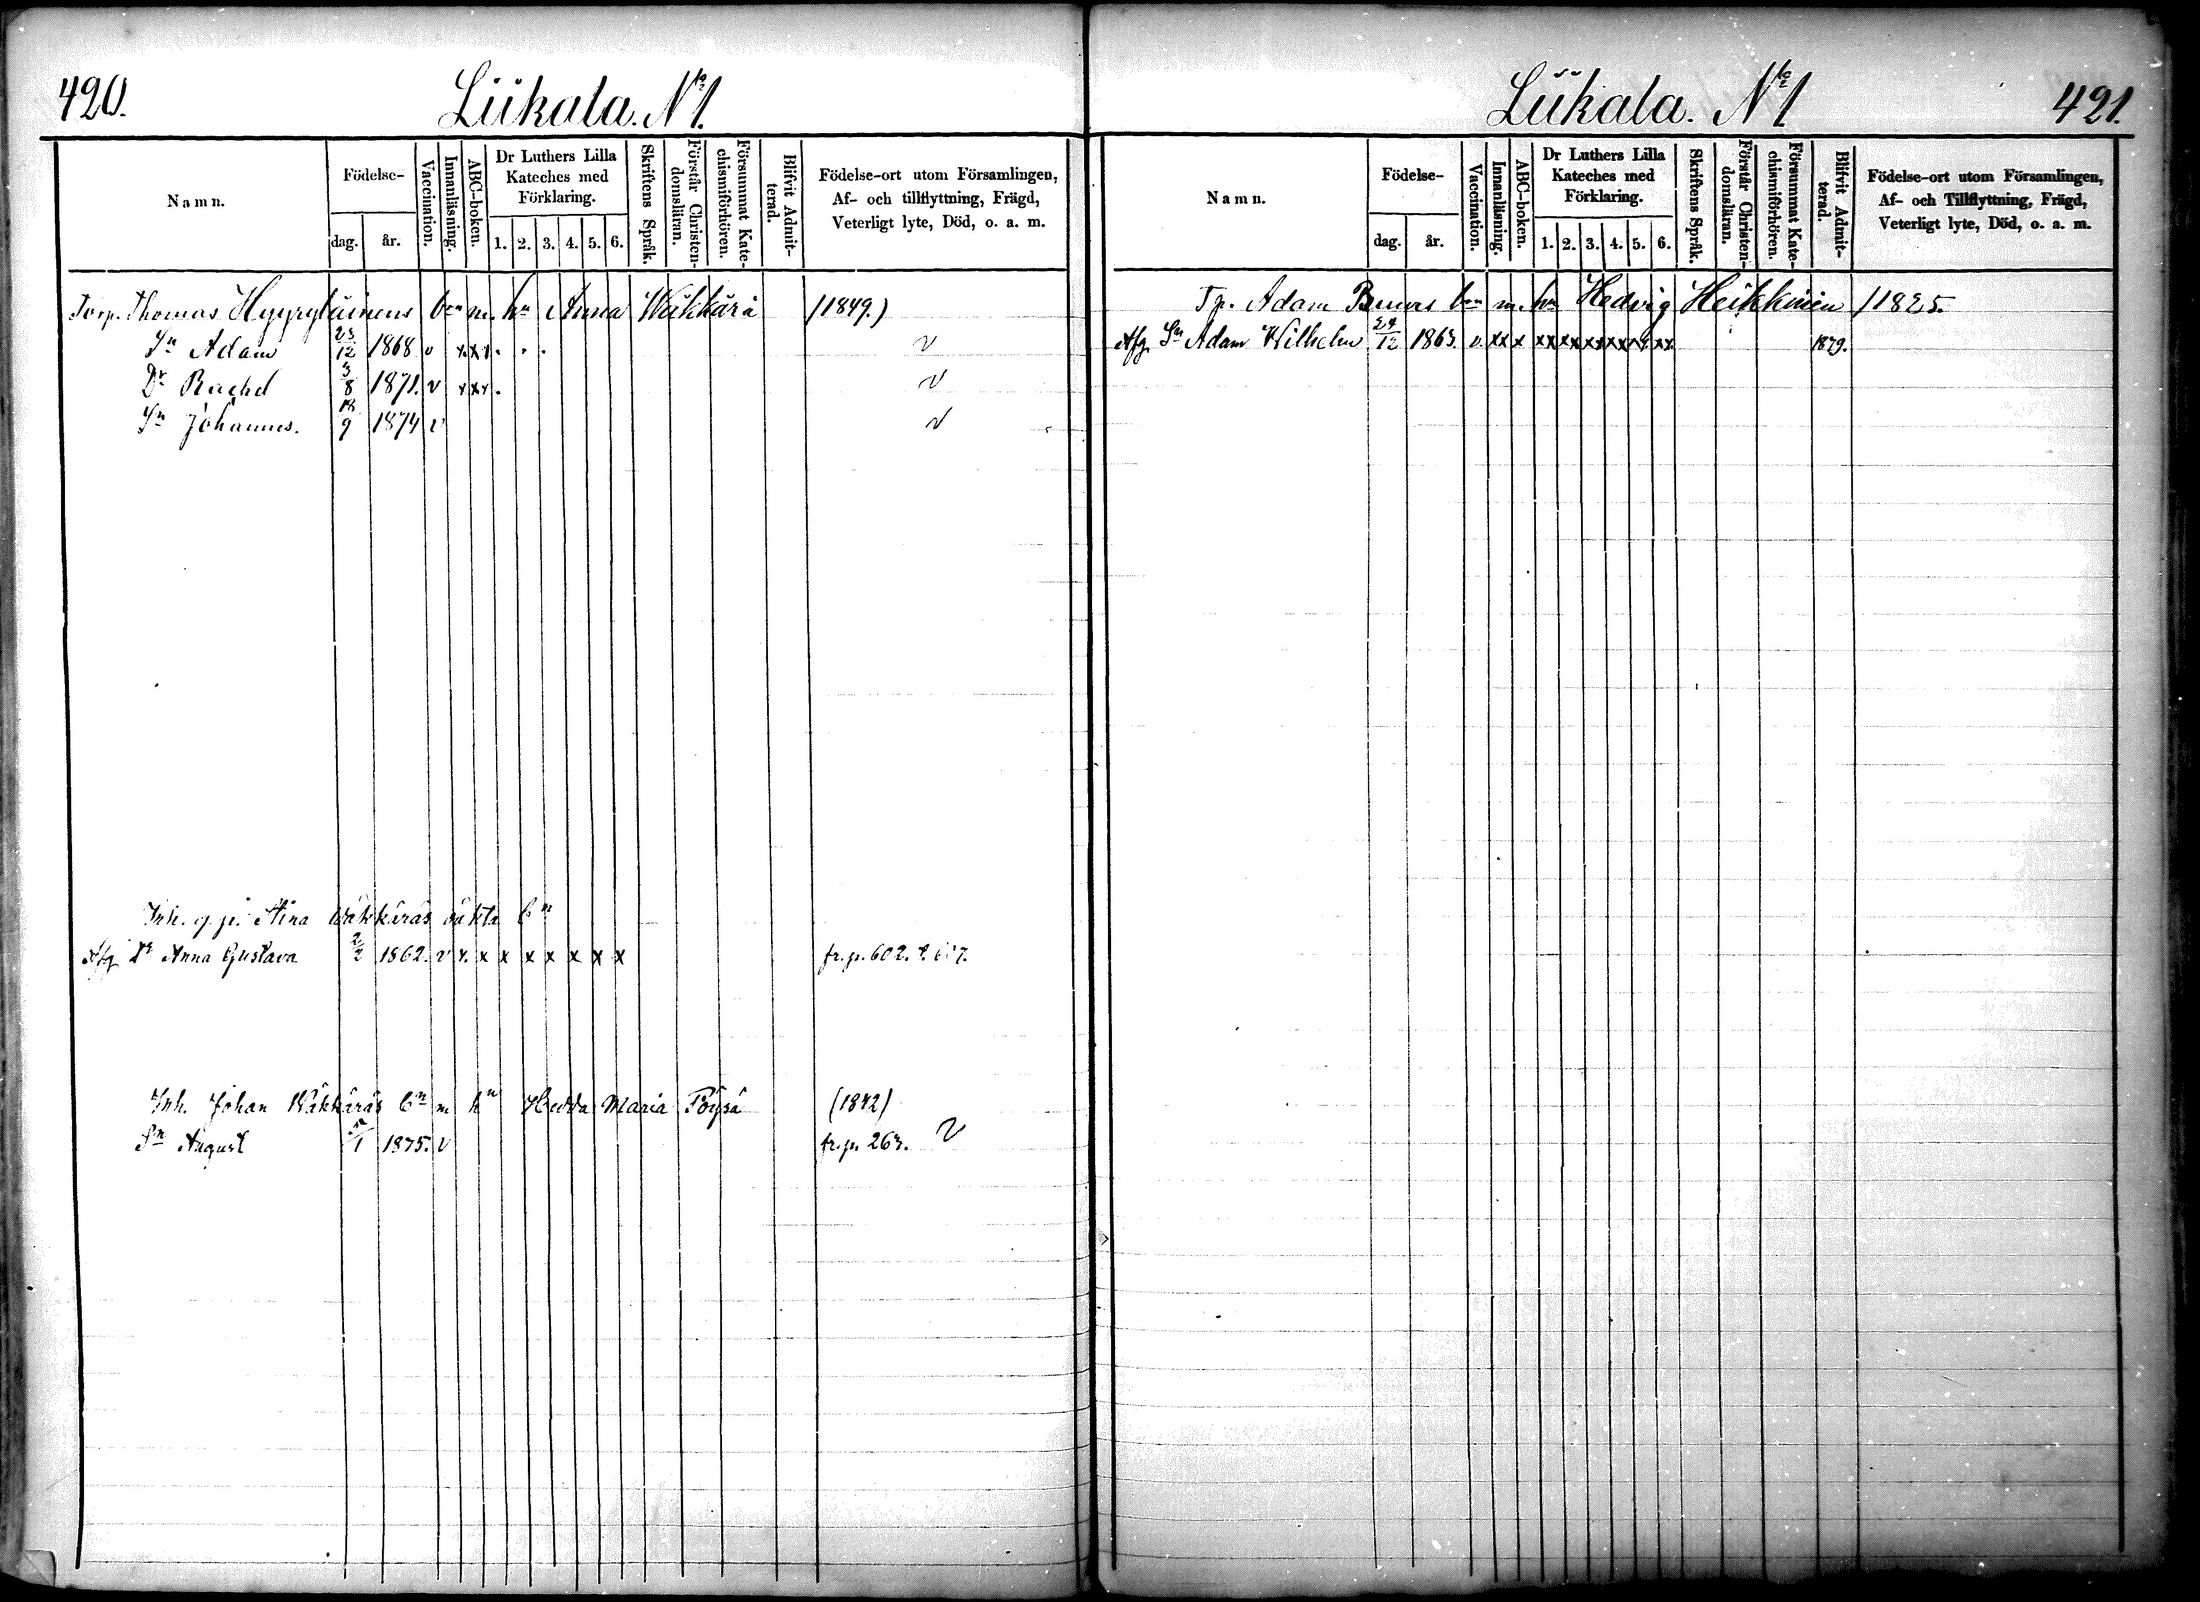 420.
Liikala. No 1.
Namn.
Födelse-
dag.
år.
Vaccination.
Innanläsning.
ABC-boken.
Dr Luthers Lilla
Kateches med
Förklaring.
1. 2. 3. 4. 5. 6.
Skriftens Språk.
Förstår Christen-
domsläran.
Försummat Kate-
chismiförhören.
Blifvit Admit-
terad.
Födelse-ort utom Församlingen,
Af- och tillflyttning, Frägd,
Veterligt lyte, Död, o. a. m.
Torp. Thomas Hyyryläinens bn m. hn Anna Wäkkärä (1849.)
Sn Adam 23/12 1868 v x x x . . . v
Dr Rachel 3/8 1871. v x x x . v
Sn Johannes. 18/9 1874 v v
Inh. g. p. Stina Wäkkäräs oäkta bn
Afg Dr Anna Gustava 2/2 1862. v x. x x x x x x x fr. p. 602. t.
Inh. Johan Wäkkäräs bn m hn Hedda Maria Pöysä (1842)
Sn August /1 1875. v fr. p. 263. v
Liikala. No 1
421.
Namn.
Födelse-
dag.
år.
Vaccination.
Innanläsning.
ABC-boken.
Dr Luthers Lilla
Kateches med
Förklaring.
1. 2. 3. 4. 5. 6.
Skriftens Språk.
Förstår Christen-
domsläran.
Försummat Kate-
chismiförhören.
Blifvit Admit-
terad.
Födelse-ort utom Församlingen,
Af- och Tillflyttning, Frägd,
Veterligt lyte, Död, o. a. m.
Tp. Adam bn m. hn Hedvig Heikkinen /1825.
Afg. Sn Adam Wilhelm 24/12 1863. v. x x x x x x x x x x x x x x 1879.